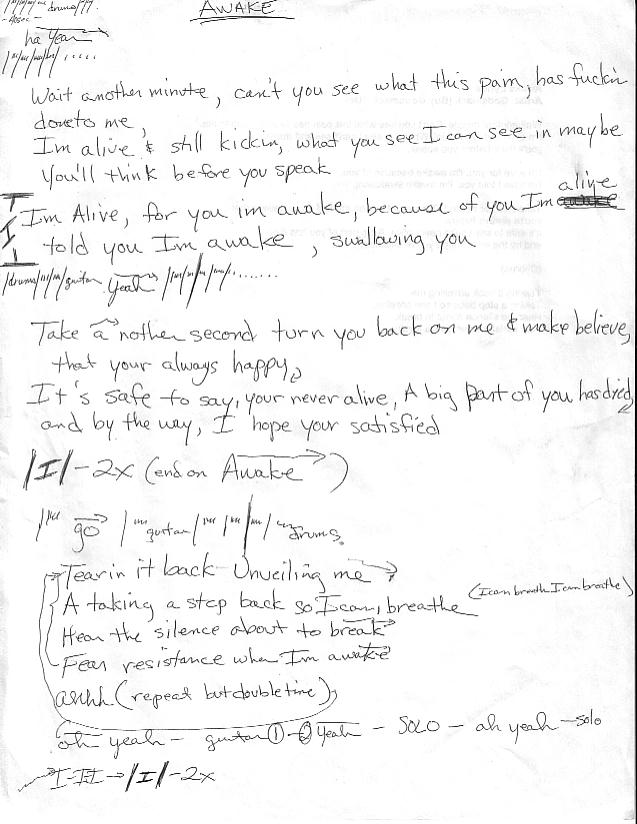 AWAKE
drums
ha Yeah
Wait another minute, can't you see what this pain, has fuckin
done to me,
Im alive & still kickin, what you see I can see in maybe
you'll think before you speak
I Im Alive, for you im awake, because of you Im alive
I told you Im awake, swallowing you
drums guitar yeah
Take a nother second turn you back on me & make believe,
that your always happy,
It's safe to say, your never alive, A big part of you has died,
and by the way, I hope your satisfied
|I| - 2x (end on Awake)
go guitar drums.
Tearin it back Unveiling me
A taking a step back so I can, breathe (I can breath I can breathe)
Hear the silence about to break
Fear resistance when Im awake
ashhh (repeat but double time)
oh yeah - guitar 1 - 2 Yeah - SOLO - ah yeah - solo
I-II → |I| - 2x